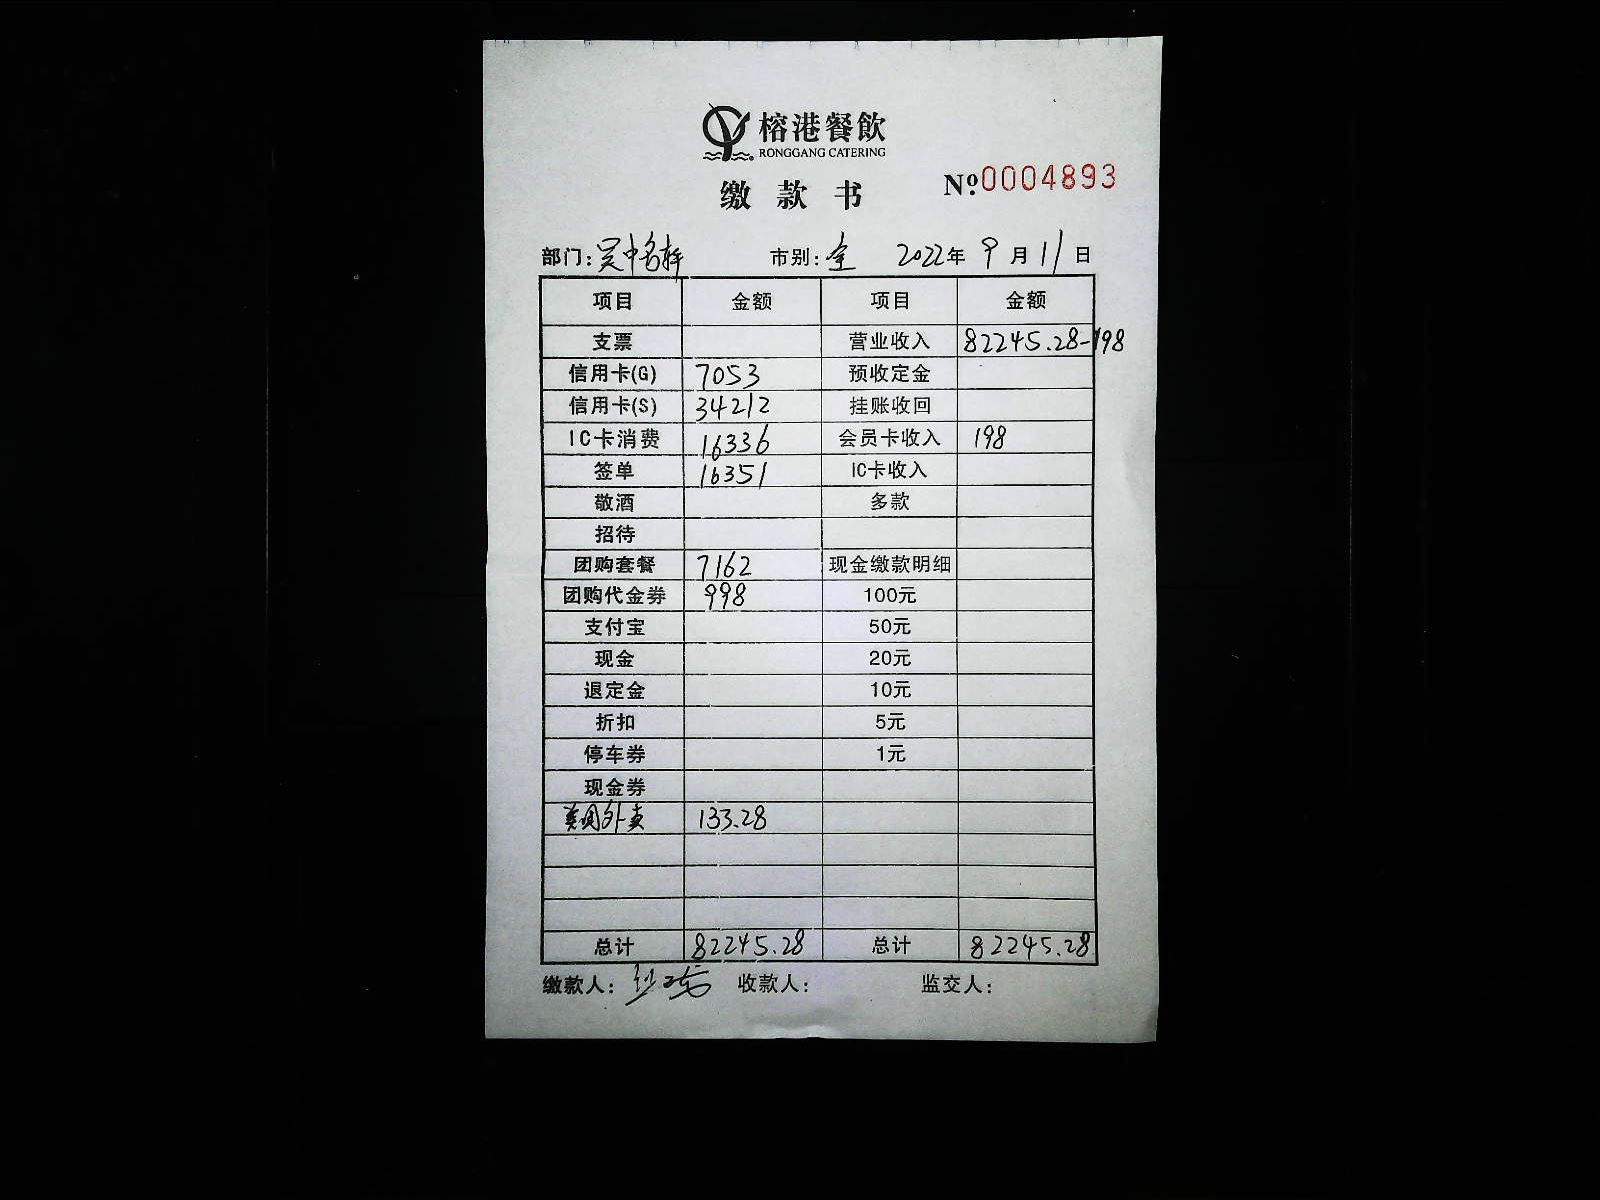 榕港餐飲
RONGGANG CATERING
缴款书 №0004893
部门: 吴中名梓 市别: 全 2022年 9月 11日
项目 金额 项目 金额
支票 营业收入 82245.28-198
信用卡(G) 7053 预收定金
信用卡(S) 34212 挂账收回
IC卡消费 16336 会员卡收入 198
签单 16351 IC卡收入
敬酒 多款
招待
团购套餐 7162 现金缴款明细
团购代金券 998 100元
支付宝 50元
现金 20元
退定金 10元
折扣 5元
停车券 1元
现金券
美团外卖 133.28
总计 82245.28 总计 82245.28
缴款人: 收款人: 监交人: